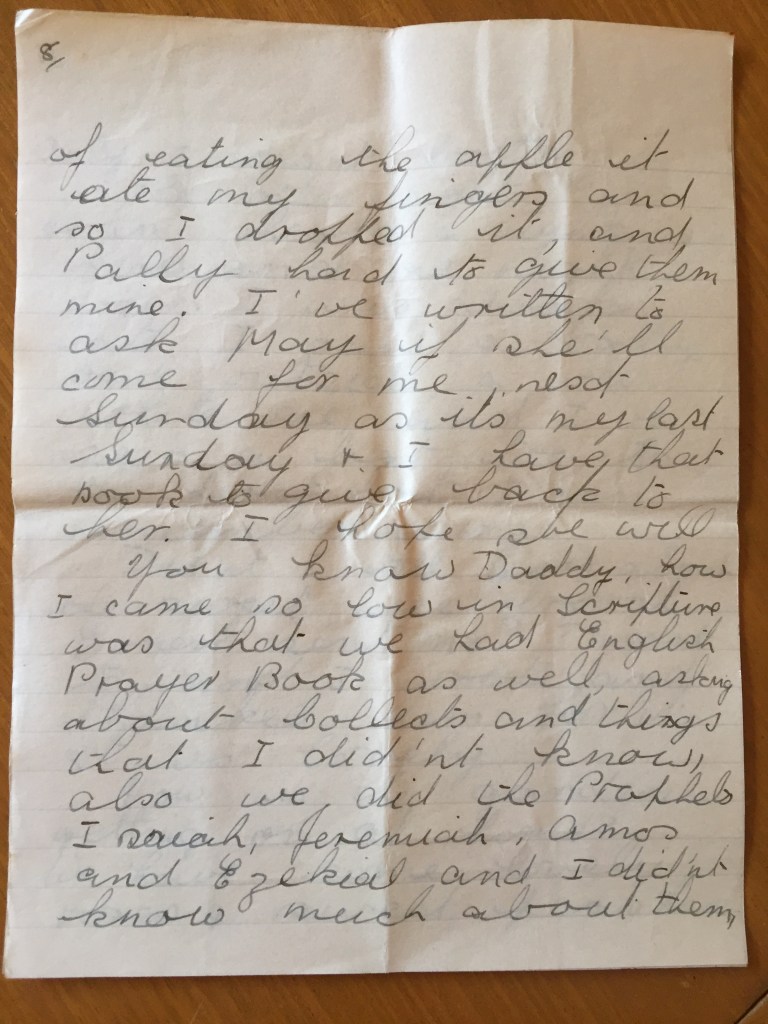 8,
of eating the apple it
ate my fingers and
so I dropped it, and
Pally had to give them
mine. I've written to
ask May if she'll
come for me next
Sunday as its my last
Sunday & I have that
book to give back to
her. I hope she will
You know Daddy, how
I came so low in Scripture
was that we had English
Prayer Book as well, asking
about Collects and things
that I did'nt know,
also we did the Prophets
Isaiah, Jeremiah, Amos
and Ezekial and I did'nt
know much about them,